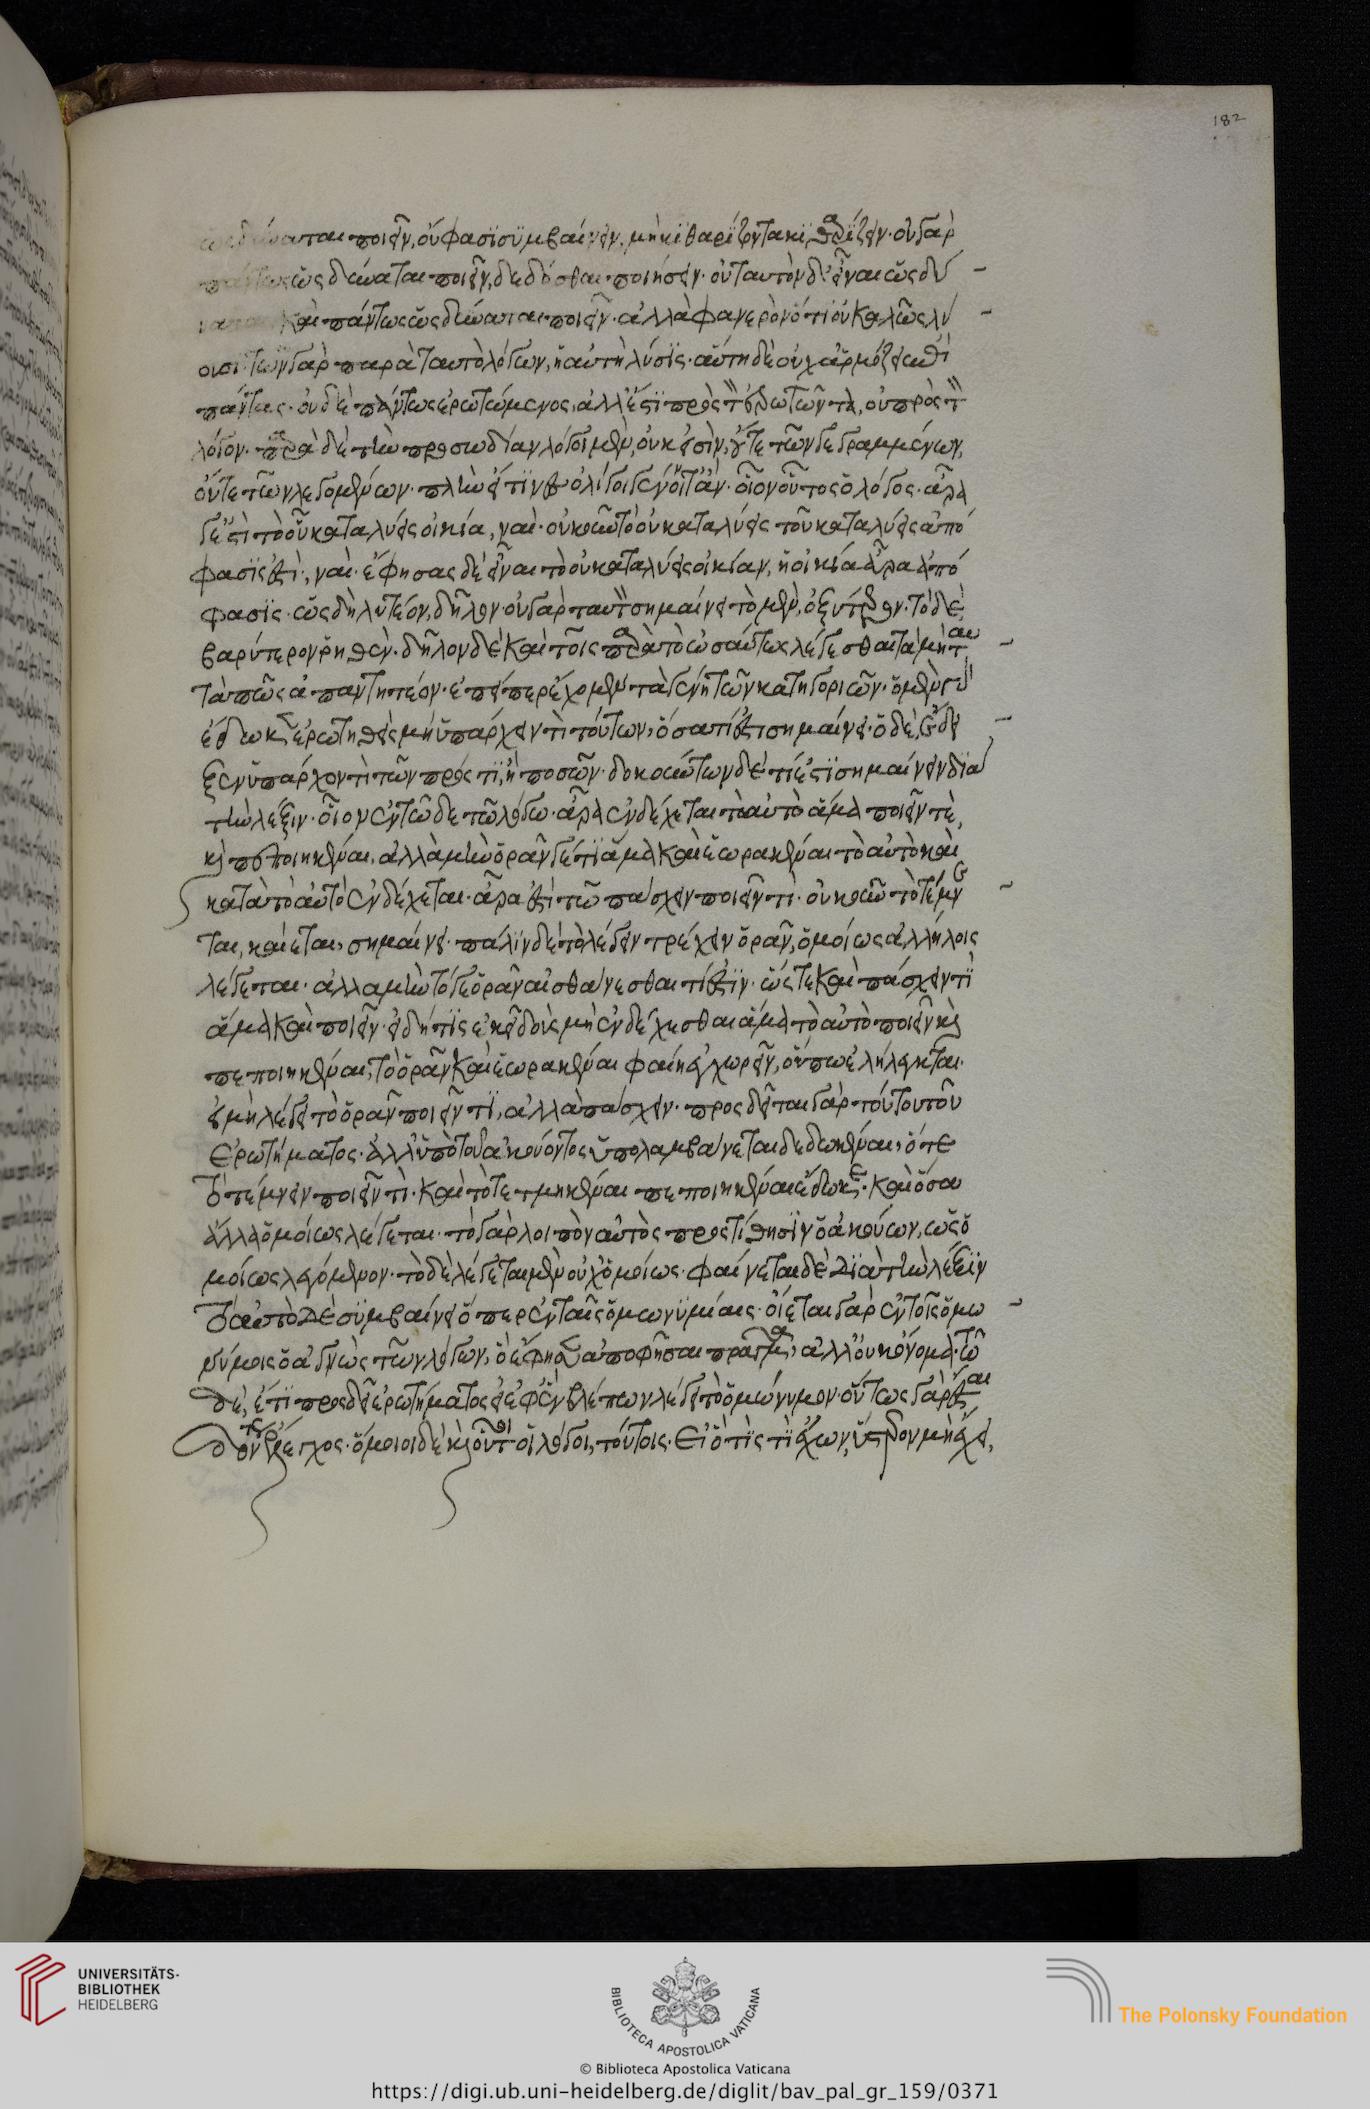 182
ὡς δύναται ποιεῖν, οὔ φασι συμβαίνειν, μὴ κιθαρίζοντα κιθαρίζειν· οὐ γὰρ
πάντως ὡς δύναται ποιεῖν, δεδόσθαι ποιήσειν· οὐ ταυτὸν δ' εἶναι ὡς δύ
ναται καὶ πάντως ὡς δύναται ποιεῖν· ἀλλὰ φανερὸν ὅτι οὐ καλῶς λύ
ουσι· τῶν γὰρ παρὰ ταυτὸ λόγων, ἡ αὐτὴ λύσις· αὕτη δὲ οὐχ ἁρμόσει ἐπὶ
πάντας· οὐδὲ πάντως ἐρωτώμενος, ἀλλ' ἔστι πρὸς τὸν ἐρωτῶντα, οὐ πρὸς τὸν
λόγον· παρὰ δὲ τὴν προσῳδίαν λόγοι μὲν, οὐκ εἰσὶν, οὔτε τῶν γεγραμμένων,
οὔτε τῶν λεγομένων· πλὴν εἴ τινες ὀλίγοι γένοιντ' ἄν· οἷον οὗτος ὁ λόγος· ἆρα
γέ ἐστι τὸ οὗ καταλύεις οἰκία, ναί· οὐκοῦν τὸ οὐ καταλύεις τοῦ καταλύεις ἀπό
φασίς ἐστι, ναί· ἔφησας δὲ εἶναι τὸ οὐ καταλύεις οἰκίαν, ἡ οἰκία ἄρα ἀπό
φασις· ὡς δὴ λυτέον, δῆλον· οὐ γὰρ ταυτὸν σημαίνει τὸ μὲν, ὀξύτερον· τὸ δὲ
βαρύτερον ῥηθέν· δῆλον δὲ καὶ τοῖς παρὰ τὸ ὡσαύτως λέγεσθαι τὰ μὴ ταυ
τὰ πῶς ἀπαντητέον· ἐπείπερ ἔχομεν τὰ γένη τῶν κατηγοριῶν· ὁ μὲν γὰρ
ἔδωκεν ἐρωτηθεὶς μὴ ὑπάρχειν τὶ τούτων, ὅσα τί ἐστι σημαίνει· ὁ δὲ, ἔδει
ξεν ὑπάρχον τὶ τῶν πρός τι, ἢ ποσῶν· δοκούντων δὲ τί ἐστι σημαίνειν διὰ
τὴν λέξιν· οἷον ἐν τῷδε τῷ λόγῳ· ἆρα ἐνδέχεται τὸ αὐτὸ ἅμα ποιεῖν τὲ,
καὶ πεποιηκέναι, ἀλλὰ μὴν ὁρᾶν γέ τι ἅμα καὶ ἑωρακέναι τὸ αὐτὸ καὶ
κατὰ τὸ αὐτὸ ἐνδέχεται· ἆρα ἐστὶ τῶ πάσχειν ποιεῖν τί· οὐκοῦν τὸ τέμνε
ται, καίεται, σημαίνει· πάλιν δὲ τὸ λέγειν τρέχειν ὁρᾶν, ὁμοίως ἀλλήλοις
λέγεται· ἀλλὰ μὴν τό γε ὁρᾶν αἰσθάνεσθαι τί ἐστιν· ὥστε καὶ πάσχειν τὶ
ἅμα καὶ ποιεῖν· εἰ δή τις ἐκεῖ δοὺς μὴ ἐνδέχεσθαι ἅμα τὸ αὐτὸ ποιεῖν καὶ
πεποιηκέναι, τὸ ὁρᾶν καὶ ἑωρακέναι φαίη ἐγχωρεῖν, οὔπω ἐλήλεγκται·
εἰ μὴ λέγει τὸ ὁρᾶν ποιεῖν τί, ἀλλὰ πάσχειν· προσδεῖται γὰρ τούτου τοῦ
ἐρωτήματος· ἀλλ' ὑπὸ τοῦ ἀκούοντος ὑπολαμβάνεται δεδωκέναι, ὅτε
τὸ τέμνειν ποιεῖν τὶ· καὶ τὸ τετμηκέναι πεποιηκέναι ἔδωκε· καὶ ὅσα
ἄλλα ὁμοίως λέγεται· τὸ γὰρ λοιπὸν αὐτὸς προστίθησιν ὁ ἀκούων, ὡς ὁ
μοίως λεγόμενον· τὸ δὲ λέγεται μὲν οὐχ ὁμοίως· φαίνεται δὲ διὰ τὴν λέξιν
τὸ αὐτὸ δὲ συμβαίνει ὅπερ ἐν ταῖς ὁμωνυμίαις· οἴεται γὰρ ἐν τοῖς ὁμω
νύμοις ὁ ἀγνὼς τῶν λόγων, ὃ ἔφησεν ἀποφῆσαι πρᾶγμα, ἀλλ' οὐκ ὄνομα· τῶ
δὲ, ἔτι προσδεῖ ἐρωτήματος εἰ ἐφ' ἓν βλέπων λέγει τὸ ὁμώνυμον· οὕτως γὰρ ἔσται
δόντος ἔλεγχος· ὅμοιοι δὲ καὶ οὗτοι οἱ λόγοι, τούτοις· εἰ ὅ τις τὶ ἔχων, ὕστερον μὴ ἔχει,
UNIVERSITÄTS-
BIBLIOTHEK
HEIDELBERG
BIBLIOTECA APOSTOLICA VATICANA
The Polonsky Foundation
© Biblioteca Apostolica Vaticana
https://digi.ub.uni-heidelberg.de/diglit/bav_pal_gr_159/0371